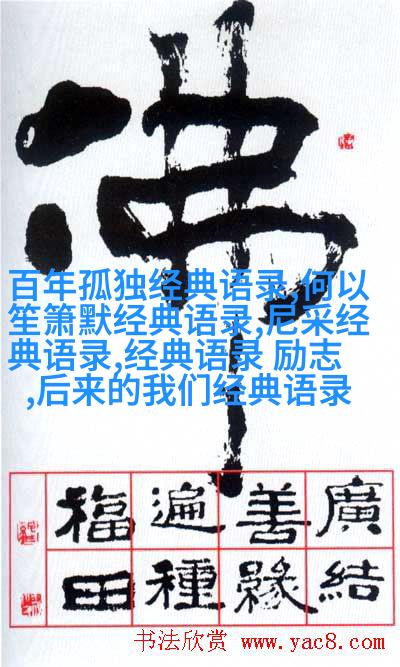 佛
百年孤独经典语录,何以
笙箫默经典语录,尼采经
典语录,经典语录 励志
,后来的我们经典语录
廣結
善緣
遍種
福田
书法欣赏 www.yac8.com